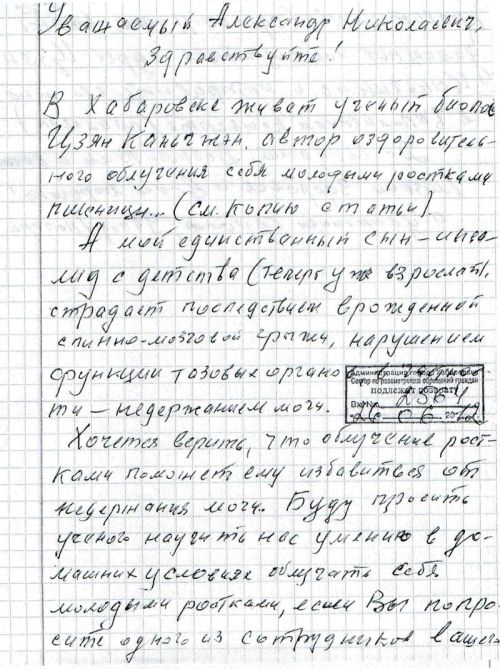 Уважаемый Александр Николаевич,
Здравствуйте!
В Хабаровске живёт ученый биолог
Цзян Каньчжэн, автор оздоровитель-
ного облучения себя молодыми ростками
пшеницы... (см. копию статьи).
А мой единственный сын - инва-
лид с детства (теперь уже взрослый),
страдает последствием врожденной
спинно-мозговой грыжи, нарушением
функции тазовых органов, в
ти - недержанием мочи.
Администрация
Сектор по рассмотрению обращений граждан
подлежит возврату
Вх №
26 06 2012
Хочется верить, что облучение рост-
ками поможет ему избавиться от
недержания мочи. Буду просить
ученого научить нас умению в до-
машних условиях облучать себя
молодыми ростками, если Вы попро-
сите одного из сотрудников вашего